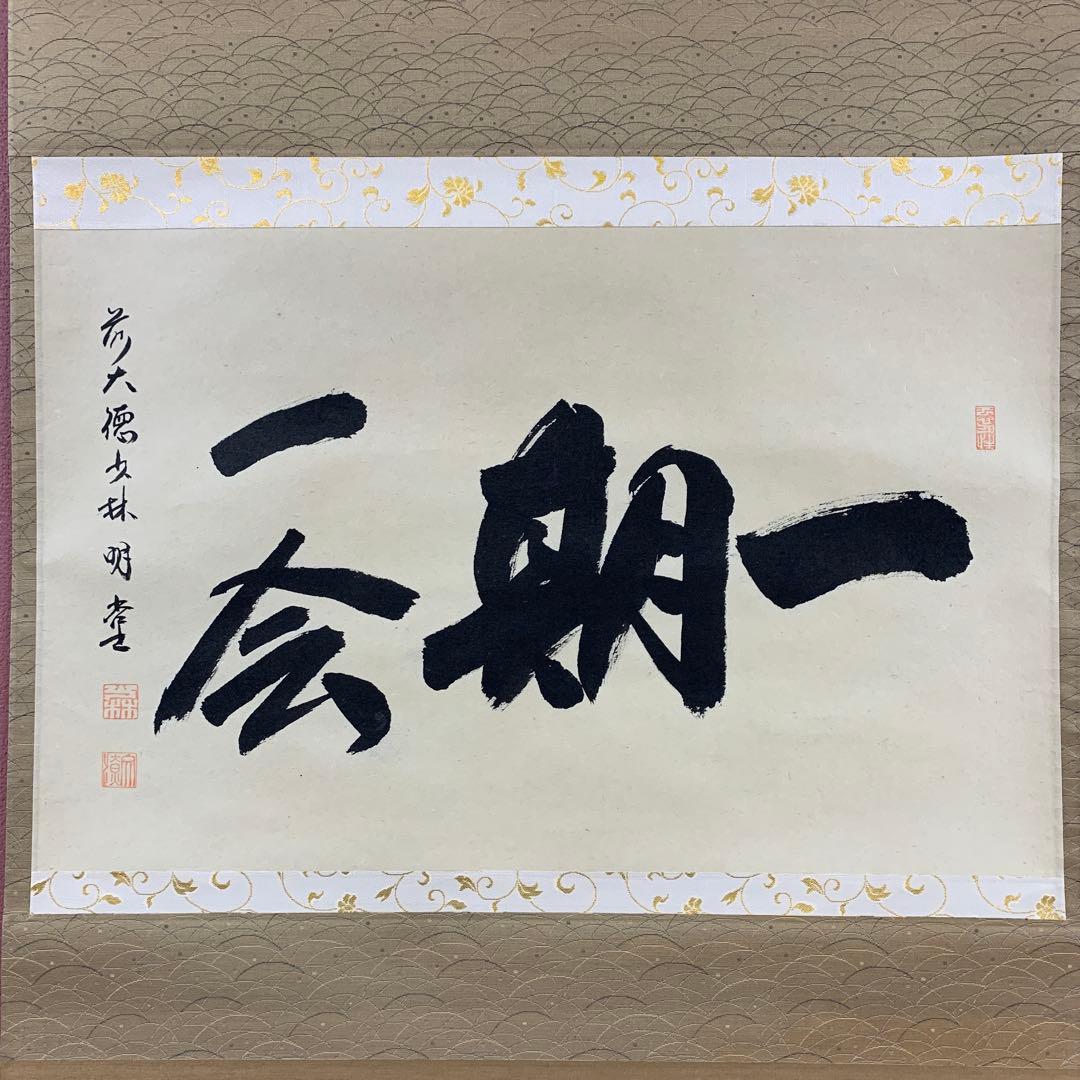 一期
一会
前大徳少林明堂